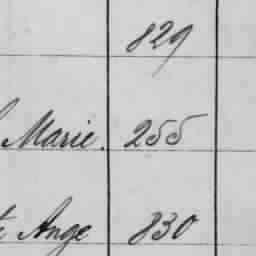 829
Marie. 255
Ange 830